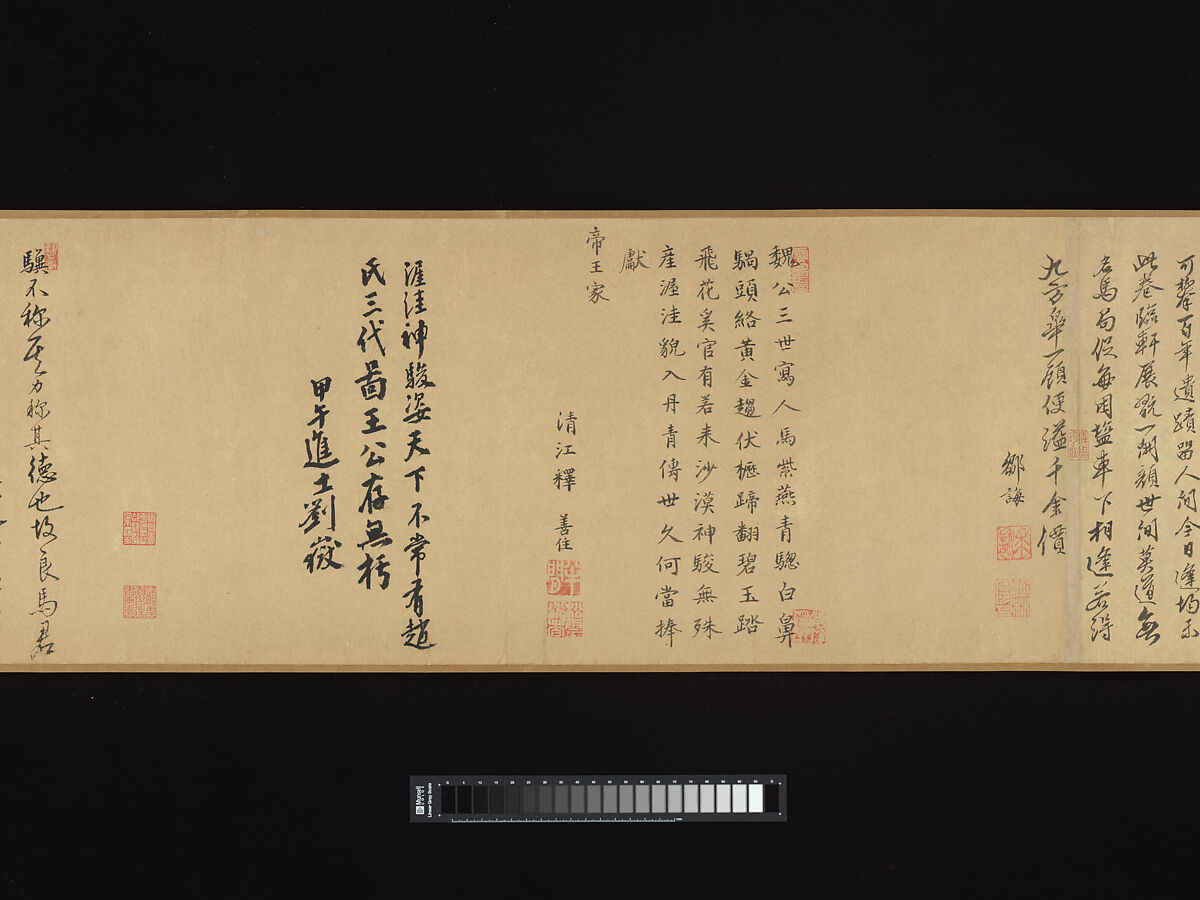 可攀百年遺蹟留人間今日逢場示
此卷臨軒展玩一開顏世間英道無
名馬局促每困鹽車下相逢若得
九方皋一顧便溢千金價
鄒誨
魏公三世寫人馬紫燕青驄白鼻
騧頭絡黃金趨伏櫪蹄翻碧玉踏
飛花奚官有若來沙漠神駿無殊
産渥洼貌入丹青傳世久何當捧
獻
帝王家
清江釋 善住
渥洼神駿姿天下不常有趙
氏三代啚王公存無朽
甲午進士劉嶽
驥不称其力称其徳也故良馬君